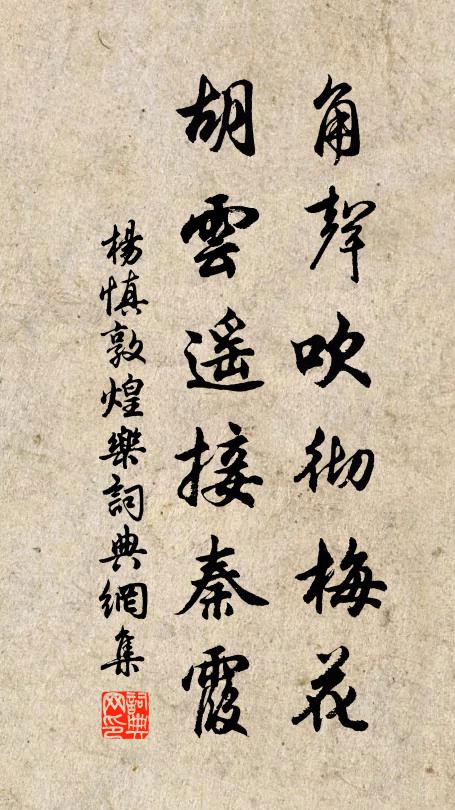 角聲吹彻梅花
胡雲遥接秦霞
楊慎敦煌樂詞典網集
詞典网印